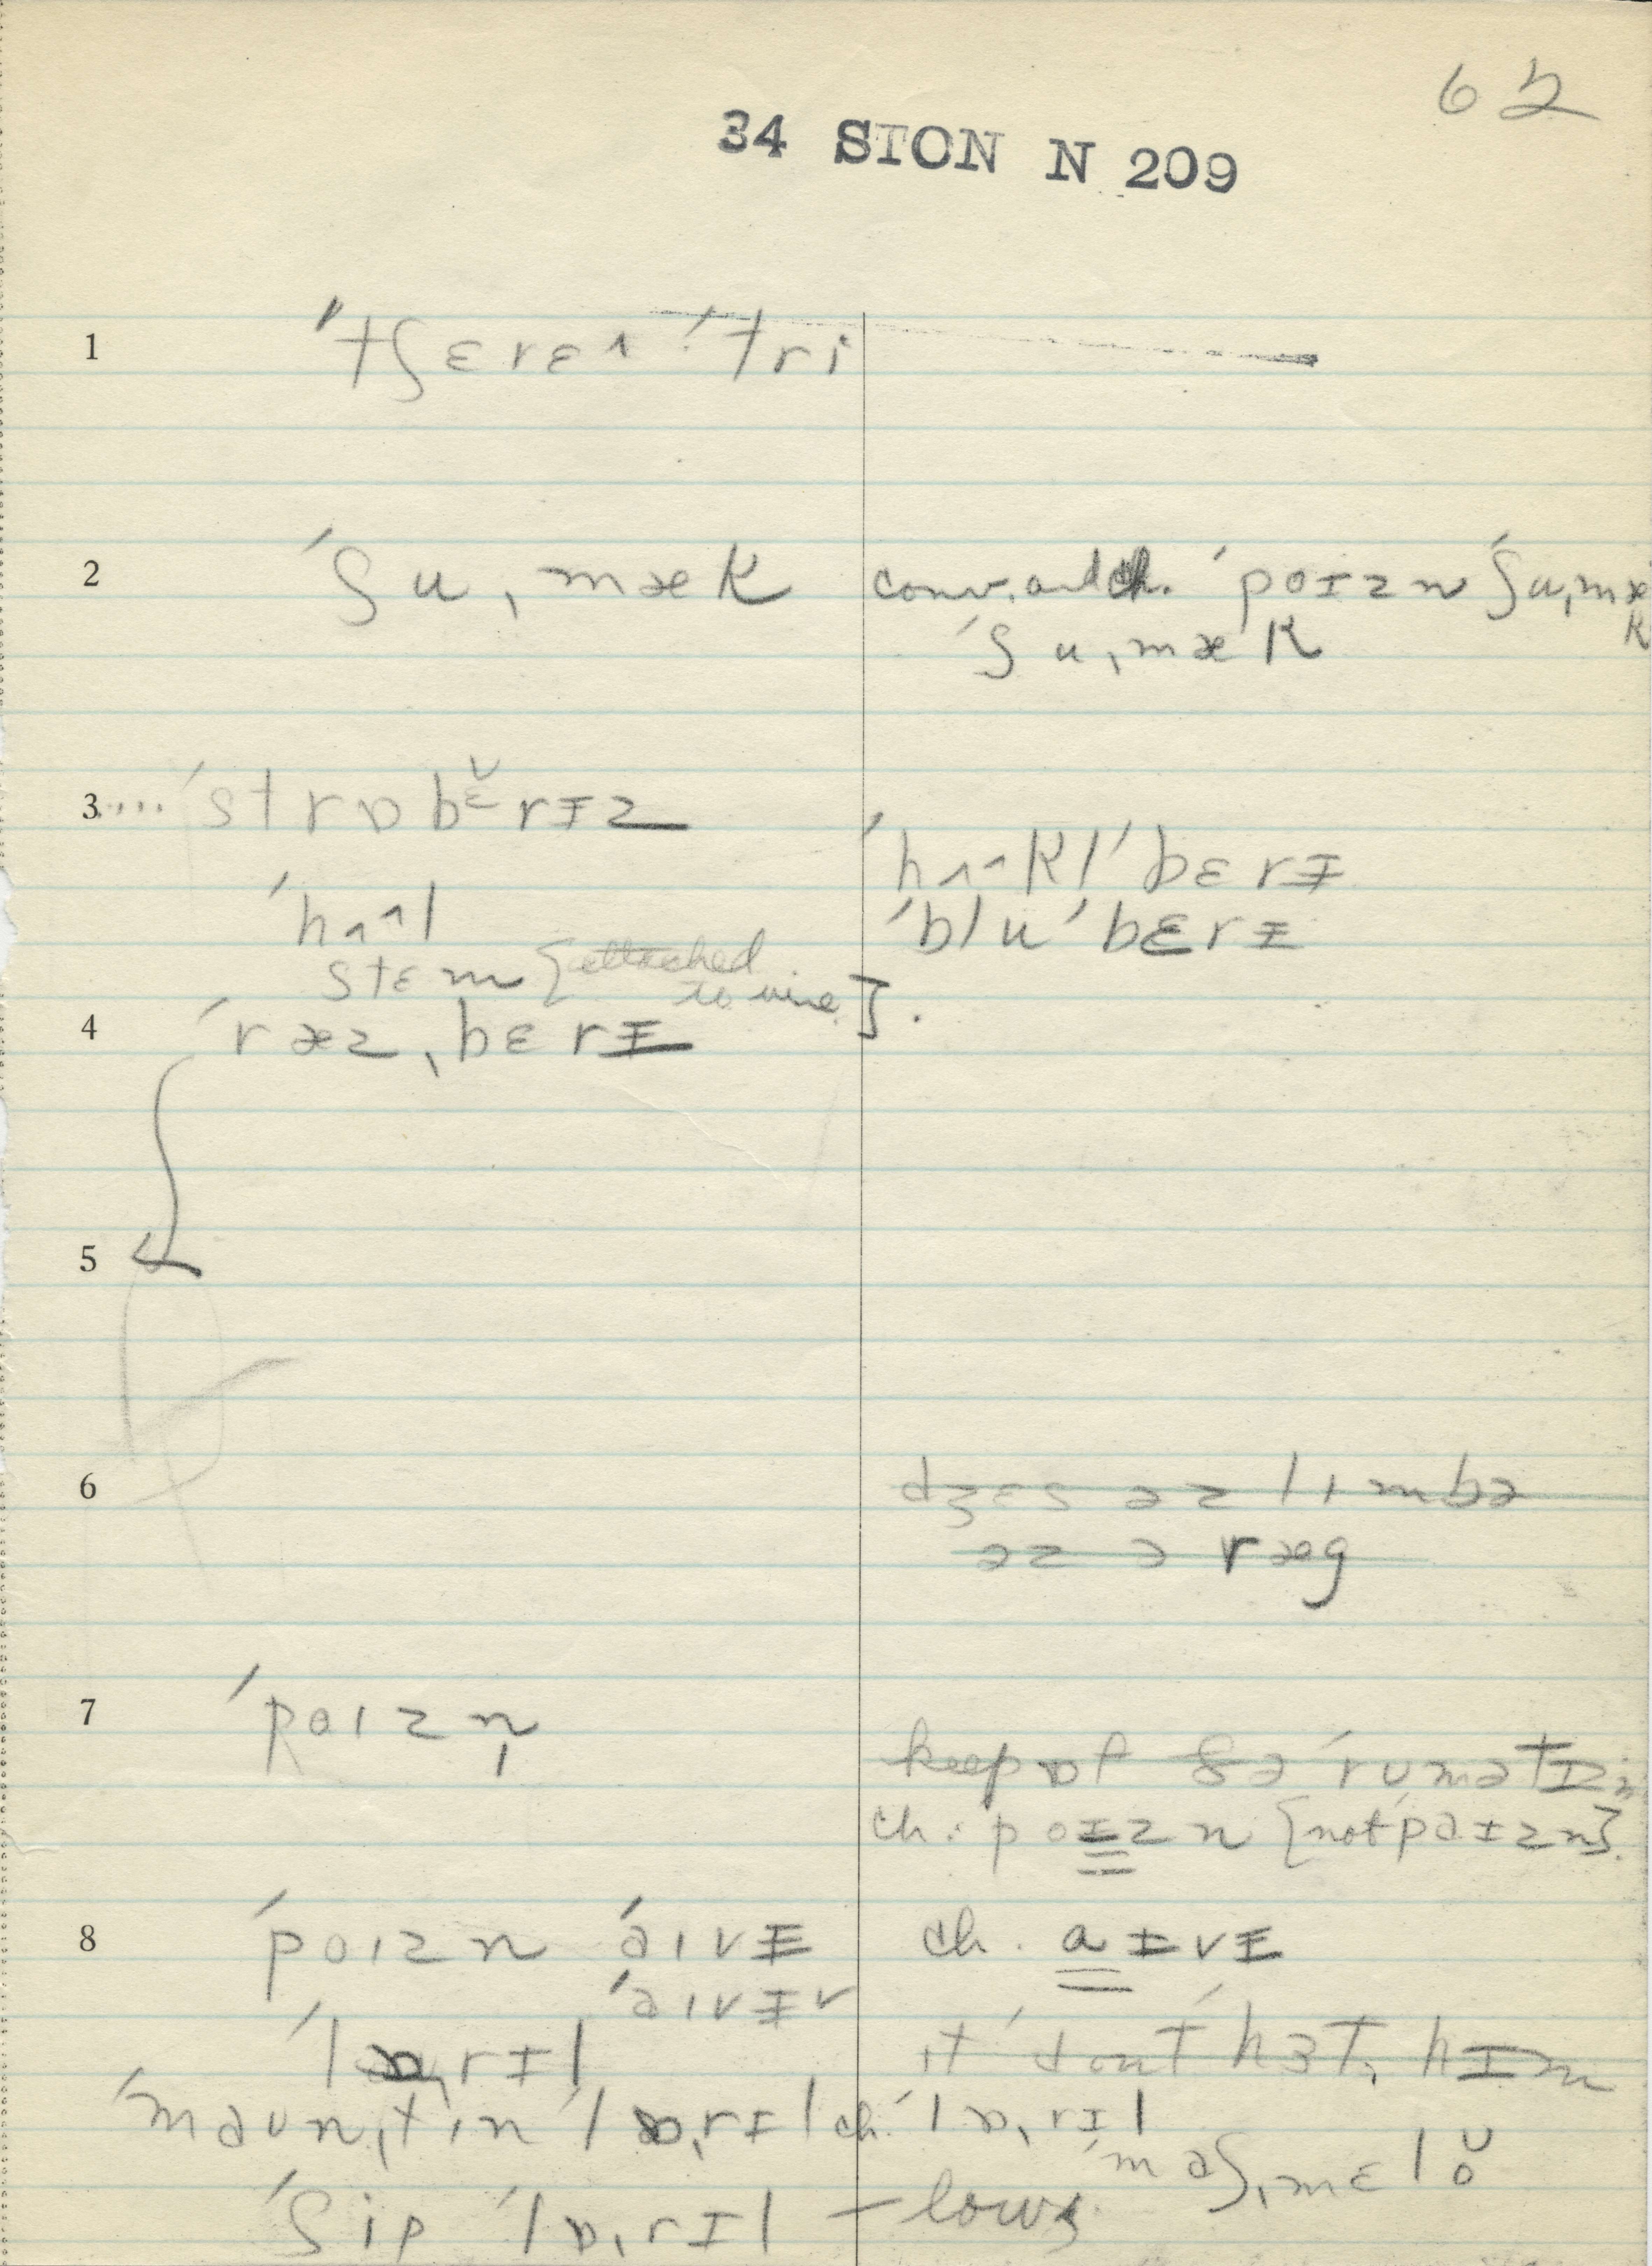 62
34 STON N 209
1 ˈtʃɛrɛ^ ˈtri
2 ˈʃu,mæk conv. and ch. ˈpoɪzn ˈʃu,mæk
ˈʃu,mæk
3.... ˈstrɒbɛ̆rɪz
ˈhʌ^kl ˈbɛrɪ
ˈhʌ^l ˈblu ˈbɛrɪ
stɛm [attached
to vine].
4 ˈræz,bɛrɪ
5
6 dʒɛs əz lɪmbə
əz ə ræg
7 ˈpoɪzn̩
keep ɒf ðə ˈrumətɪzm
ch. poɪzn [not paɪzn].
8 ˈpoɪzn ˈaɪvɪ ch. aɪvɪ
ˈaɪvɪr
ˈlɒ,rɪl it ˈdont ˈhɜt, hɪm
ˈmaʊn,tin ˈlɒ,rɪl ch. ˈlɒ,rɪl
ˈmaʃ,mɛlŏ
ˈʃip ˈlɒ,rɪl – lows